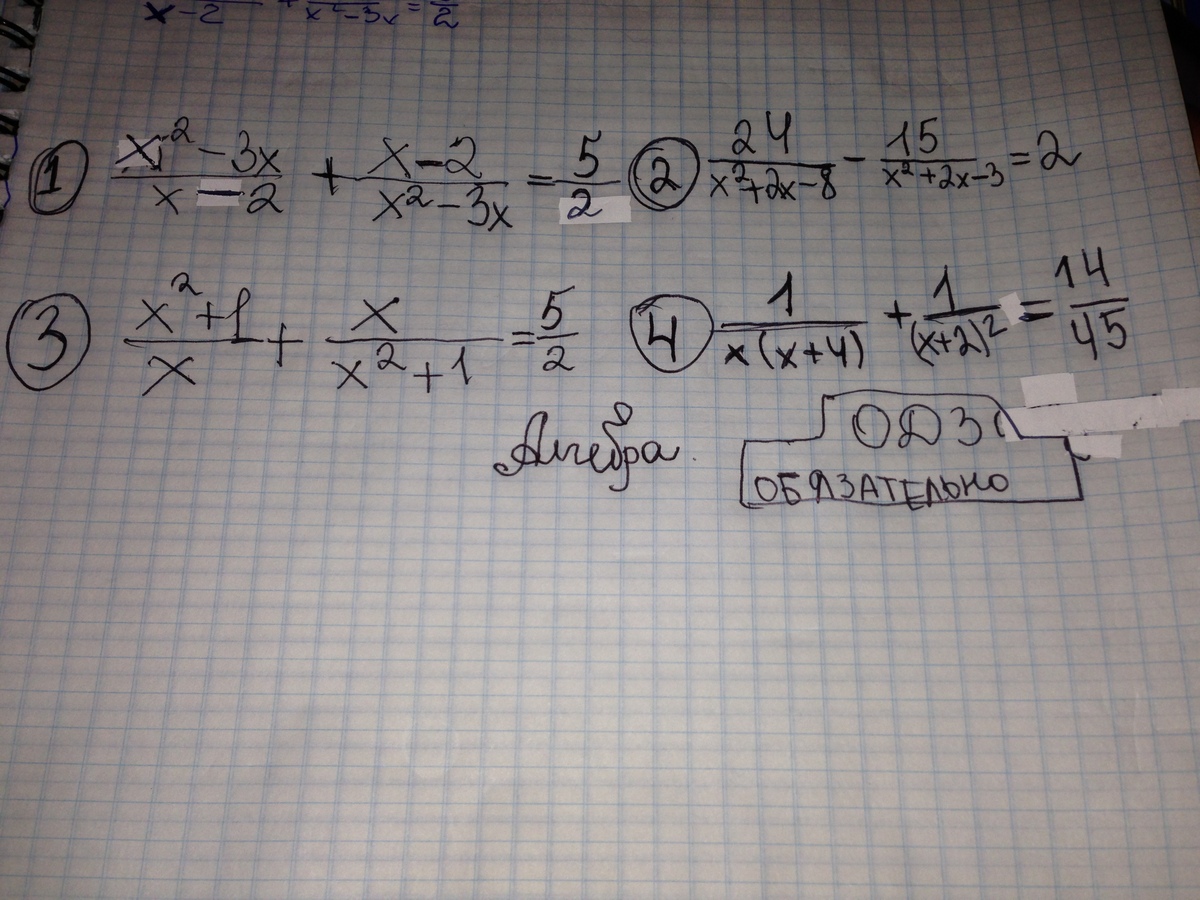 x-2 + x²-3x = 2
① (x²-3x)/(x-2) + (x-2)/(x²-3x) = 5/2
② 24/(x²+2x-8) - 15/(x²+2x-3) = 2
③ (x²+1)/x + x/(x²+1) = 5/2
④ 1/(x(x+4)) + 1/(x+2)² = 14/45
Алгебра.
ОДЗ
ОБЯЗАТЕЛЬНО